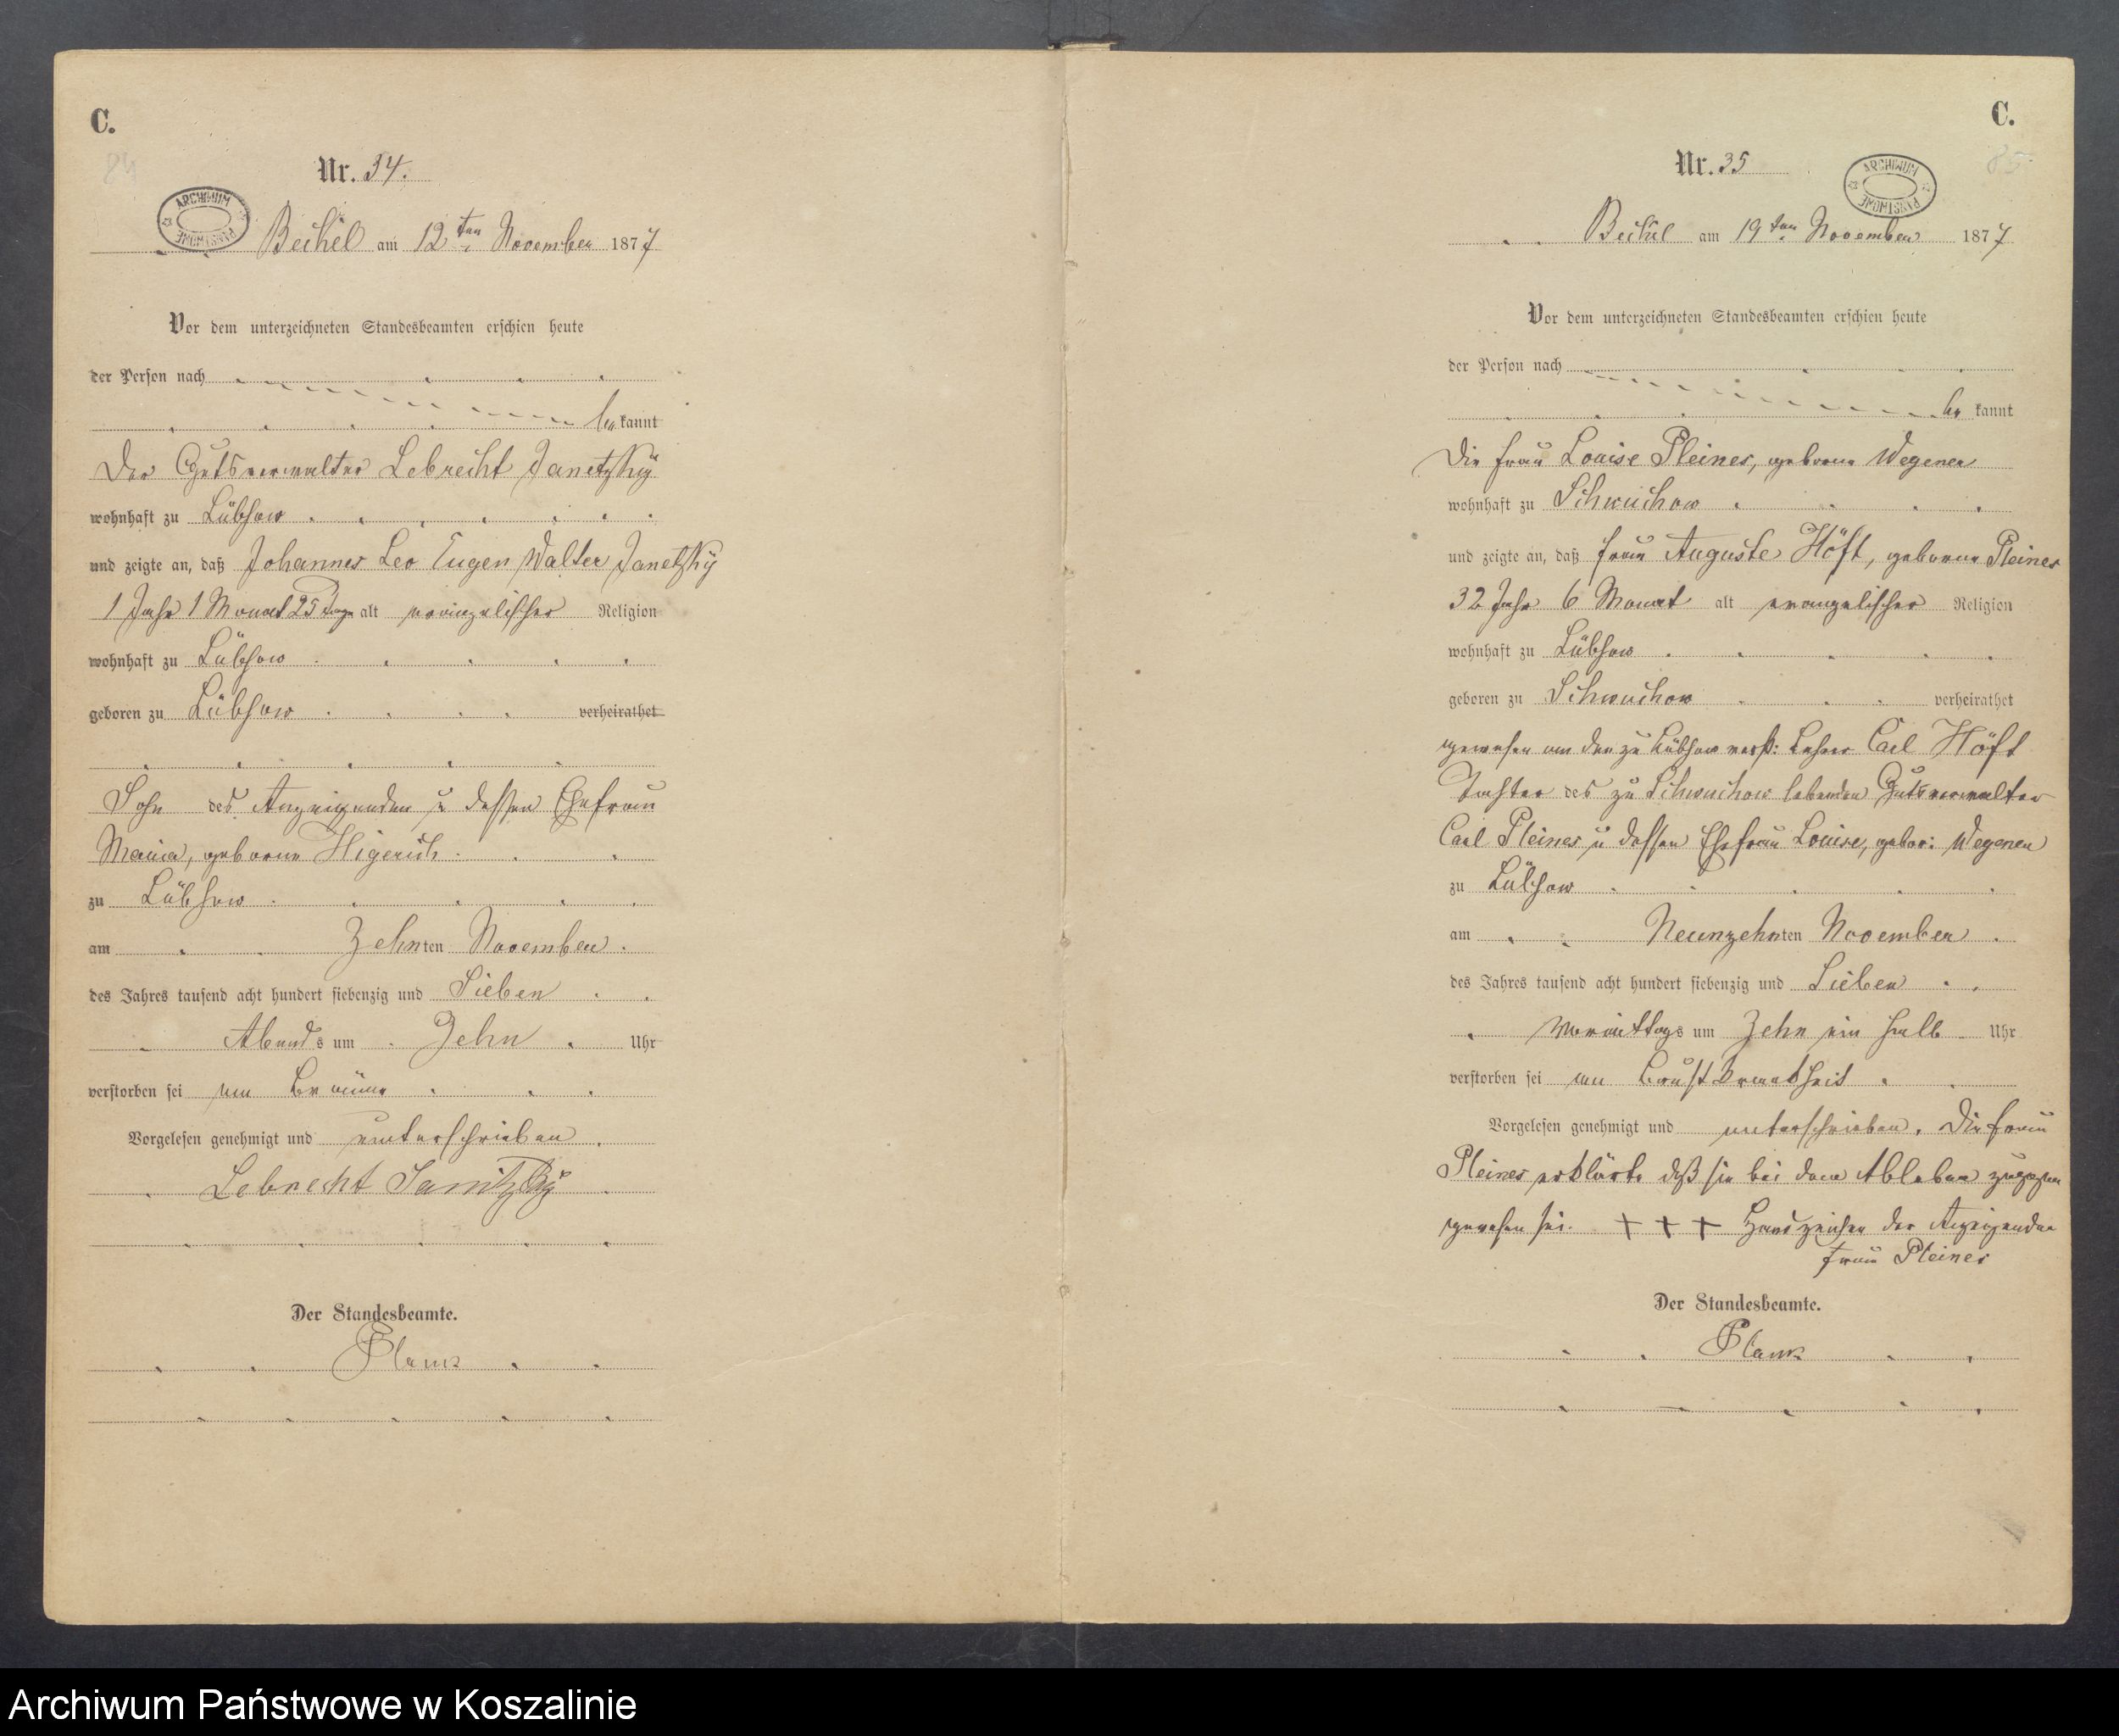 C.
84
Nr. 34.
ARCHIWUM PAŃSTWOWE
Beckel am 12ten November 1877
Vor dem unterzeichneten Standesbeamten erschien heute
der Person nach
be kannt
Der Gutsverwalter Lebrecht Janetzky
wohnhaft zu Lübzow
und zeigte an, daß Johannes Leo Eugen Walter Janetzky
1 Jahr 1 Monat 25 Tage alt evangelischer Religion
wohnhaft zu Lübzow
geboren zu Lübzow verheirathet
Sohn des Anzeigenden u dessen Ehefrau
Maria, geborne Higerich
zu Lübzow
am Zehnten November
des Jahres tausend acht hundert siebenzig und Sieben
Abends um Zehn Uhr
verstorben sei an Bräune
Vorgelesen genehmigt und unterschrieben
Lebrecht Janitzky
Der Standesbeamte.
Plank
C.
85
Nr. 35
ARCHIWUM PAŃSTWOWE
Beckel am 19ten November 1877
Vor dem unterzeichneten Standesbeamten erschien heute
der Person nach
be kannt
Die Frau Louise Pleines, geborne Wegener
wohnhaft zu Schwuchow
und zeigte an, daß Frau Auguste Höft, geborne Pleines
32 Jahr 6 Monat alt evangelischer Religion
wohnhaft zu Lübzow
geboren zu Schwuchow verheirathet
gewesen an den zu Lübzow verst: Lehrer Carl Höft
Tochter des zu Schwuchow lebenden Gutsverwalter
Carl Pleines u dessen Ehefrau Louise, gebor: Wegener
zu Lübzow
am Neunzehnten November
des Jahres tausend acht hundert siebenzig und Sieben
Vormittags um Zehn ein halb Uhr
verstorben sei an Brustkrankheit
Vorgelesen genehmigt und unterschrieben. Die Frau
Pleines erklärte daß sie bei dem Ableben zugegen
gewesen sei. + + + Handzeichen der Anzeigenden
Frau Pleines
Der Standesbeamte.
Plank
Archiwum Państwowe w Koszalinie